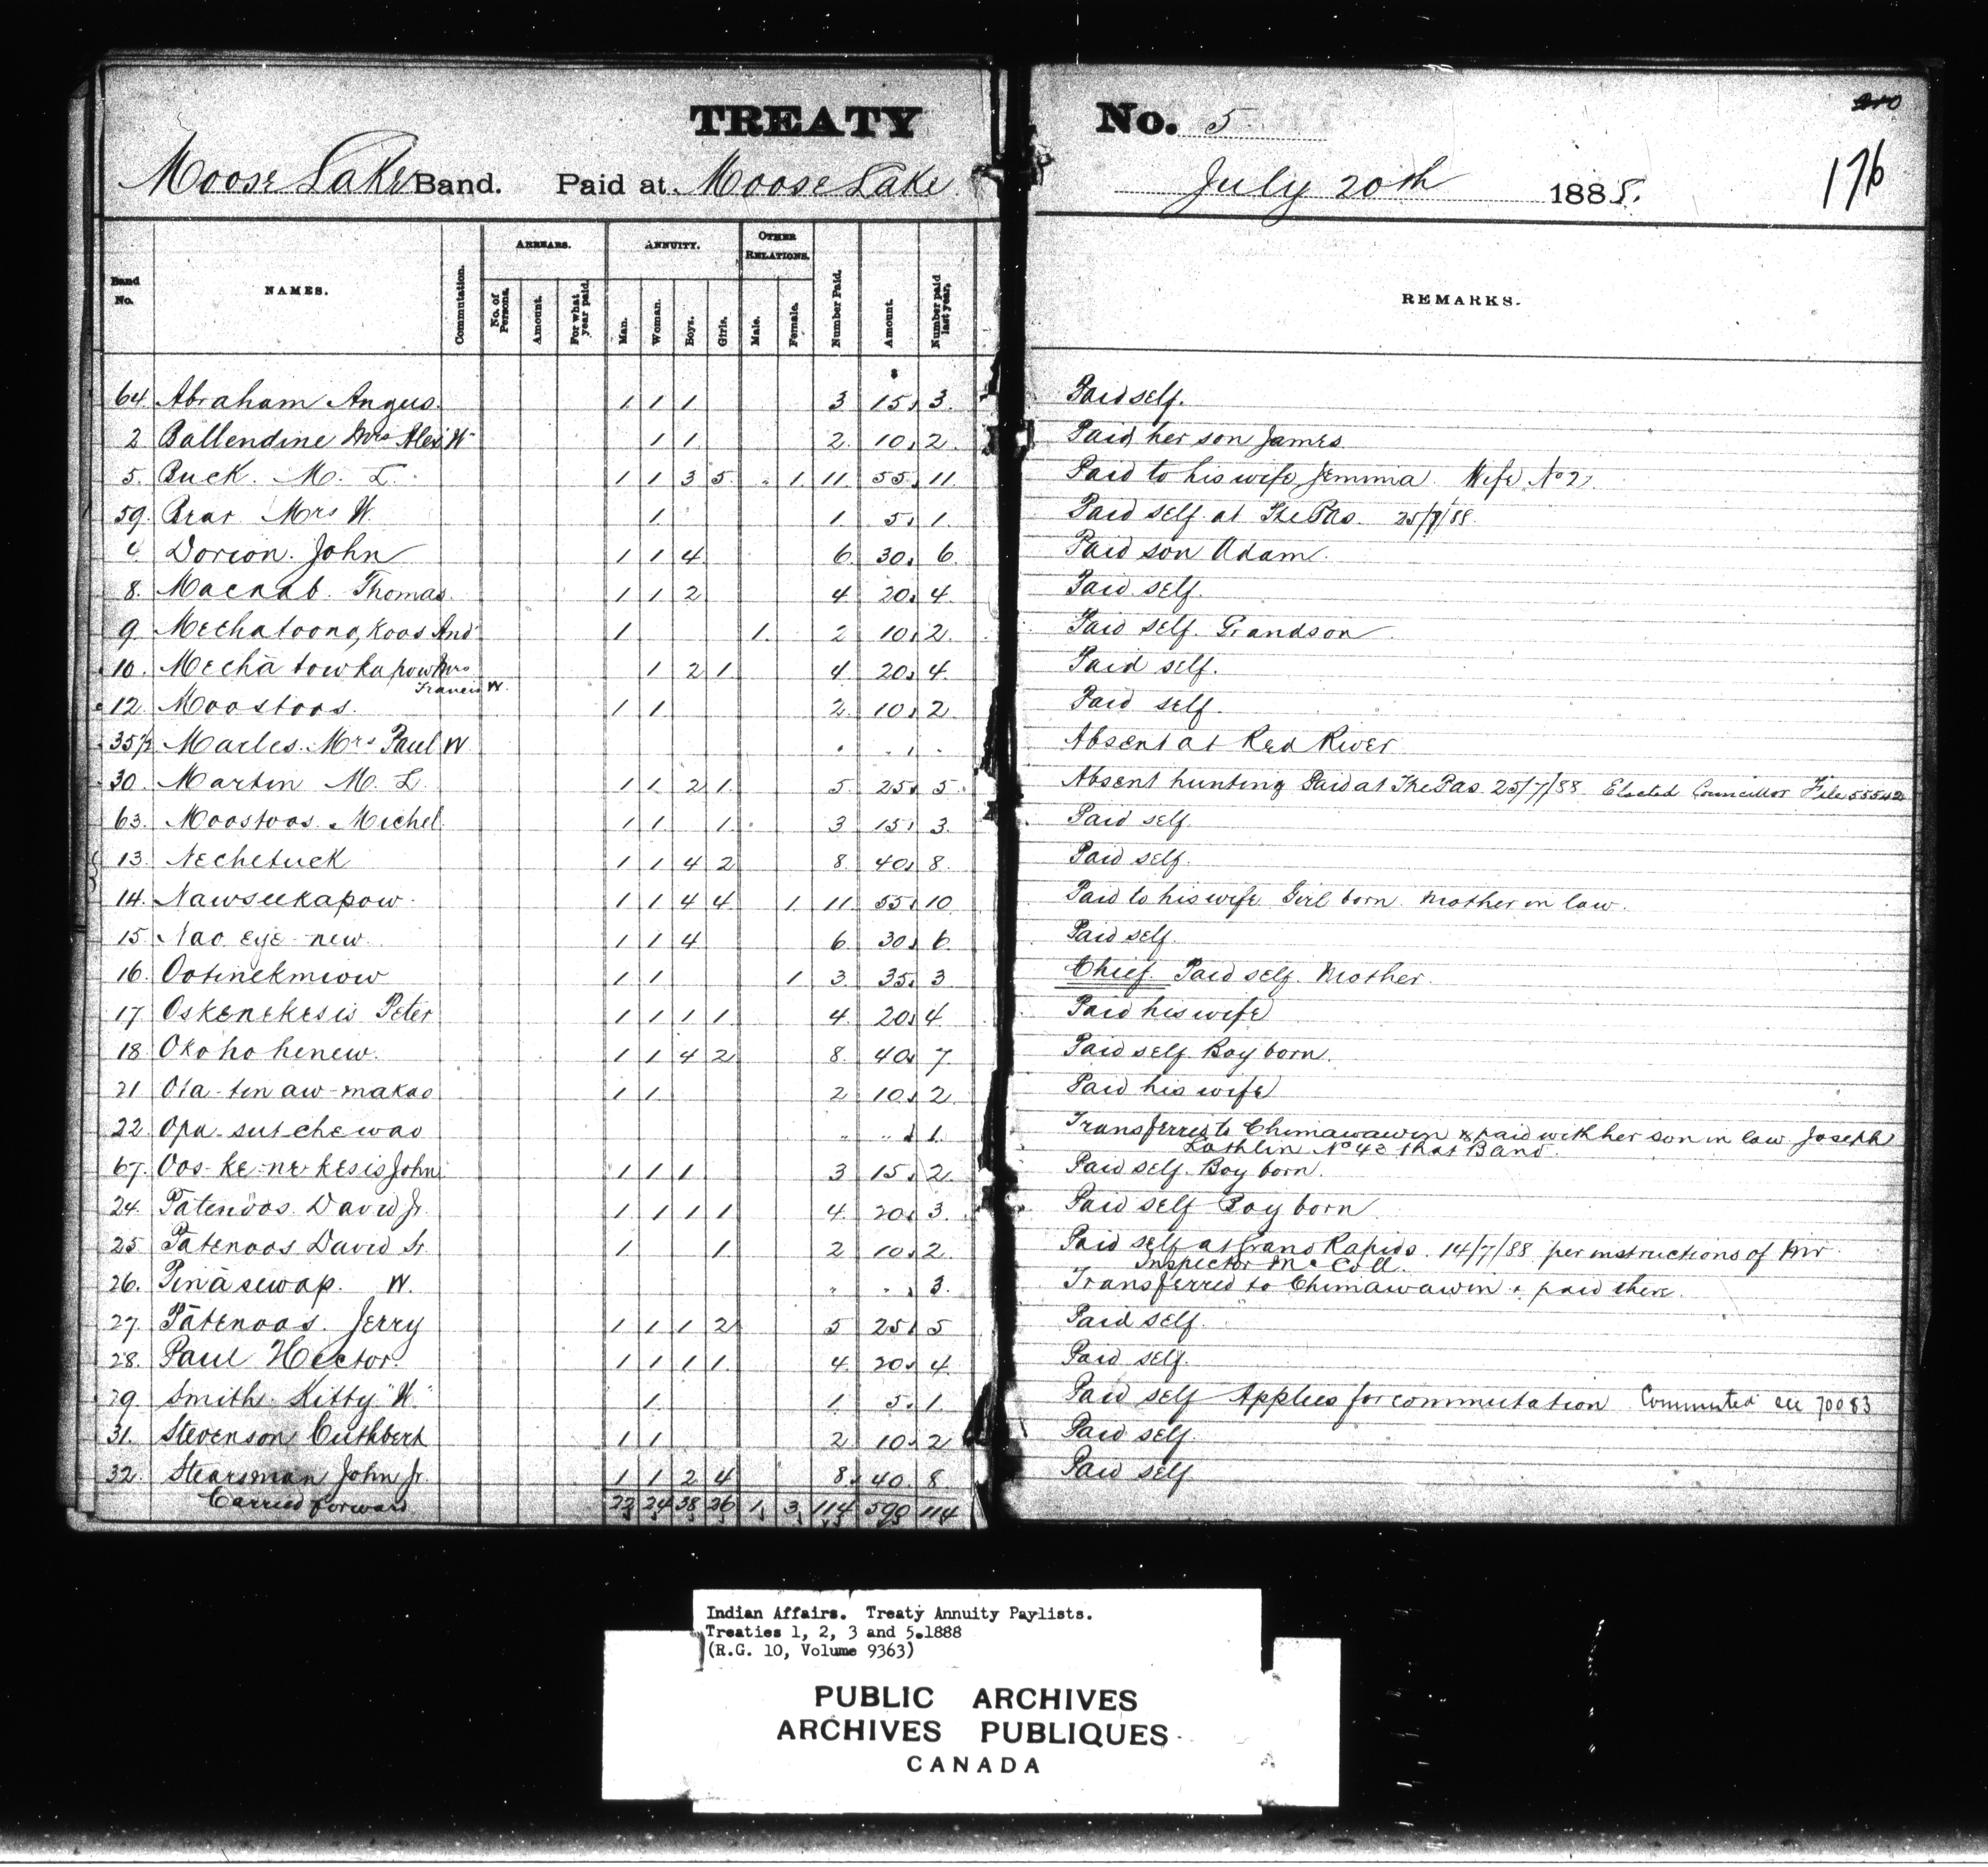 TREATY No. 5
210
176
Moose Lake Band. Paid at Moose Lake July 20th 1888.
Band No. NAMES. Commutation. ARREARS. No. of Persons. Amount. For what year paid. ANNUITY. Man. Woman. Boys. Girls. OTHER RELATIONS. Male. Female. Number Paid. Amount. Number paid last year, REMARKS.
$
64 Abraham Angus. 1 1 1 3 15 3 Paid self.
2 Ballendine Mrs Alex "W" 1 1 2 10 2 Paid her son James
5. Buck. M. L. 1 1 3 5 1 11 55 11 Paid to his wife Jemima. Wife No 2.
59. Brar Mrs W. 1 1 5 1 Paid self at The Pas. 25/7/88
Dorion. John 1 1 4 6 30 6 Paid son Adam.
8. Macnab. Thomas 1 1 2 4 20 4 Paid self.
9 Mechatoong, Koos And 1 1 2 10 2 Paid self. Grandson
10. Mechā tow ka pow Mrs 1 2 1 4 20 4 Paid self.
Francis W.
12. Moostoos. 1 1 2 10 2 Paid self.
35½ Marles. Mrs Paul W Absent at Red River
30. Martin M. L. 1 1 2 1 5 25 5 Absent hunting Paid at The Pas 25/7/88 Elected Councillor File 55542
63. Moostoos. Michel. 1 1 1 3 15 3 Paid self
13. Nechetuck 1 1 4 2 8 40 8 Paid self.
14. Nawseekapow. 1 1 4 4 1 11 55 10 Paid to his wife Girl born. Mother in law.
15 Nao eye-new 1 1 4 6 30 6 Paid self.
16. Ootinekmiow 1 1 1 3 35 3 Chief. Paid self. Mother.
17. Oskenekesis Peter 1 1 1 1 4 20 4 Paid his wife
18 Oko ho henew. 1 1 4 2 8 40 7 Paid self Boy born.
21 Ota-tin aw-makao 1 1 2 10 2 Paid his wife
22 Opa-sutchewao " " 1. Transferred to Chimawawin & paid with her son in law Joseph
No 43 that Band.
67. Oos-ke-ne-kesis John 1 1 1 3 15 2 Paid self. Boy born.
24. Patenoos David Jr. 1 1 1 1 4 20 3 Paid self Boy born
25. Patenoos David Sr. 1 1 2 10 2 Paid self at Grand Rapids. 14/7/88 per instructions of Mr
Inspector McColl.
26. Pināsewap. W. " " 3. Transferred to Chimawawin & paid there.
27. Pātenoos. Jerry 1 1 1 2 5 25 5 Paid self.
28. Paul Hector. 1 1 1 1 4 20 4 Paid self.
29. Smith. Kitty "W." 1 1 5 1 Paid self Applies for commutation Commuted see 70083
31. Stevenson Cuthbert 1 1 2 10 2 Paid self.
32. Stearsman John Jr. 1 1 2 4 8 40 8 Paid self
Carried forward 22 24 38 26 1 3 114 590 114
Indian Affairs. Treaty Annuity Paylists.
Treaties 1, 2, 3 and 5.1888
(R.G. 10, Volume 9363)
PUBLIC ARCHIVES
ARCHIVES PUBLIQUES
CANADA